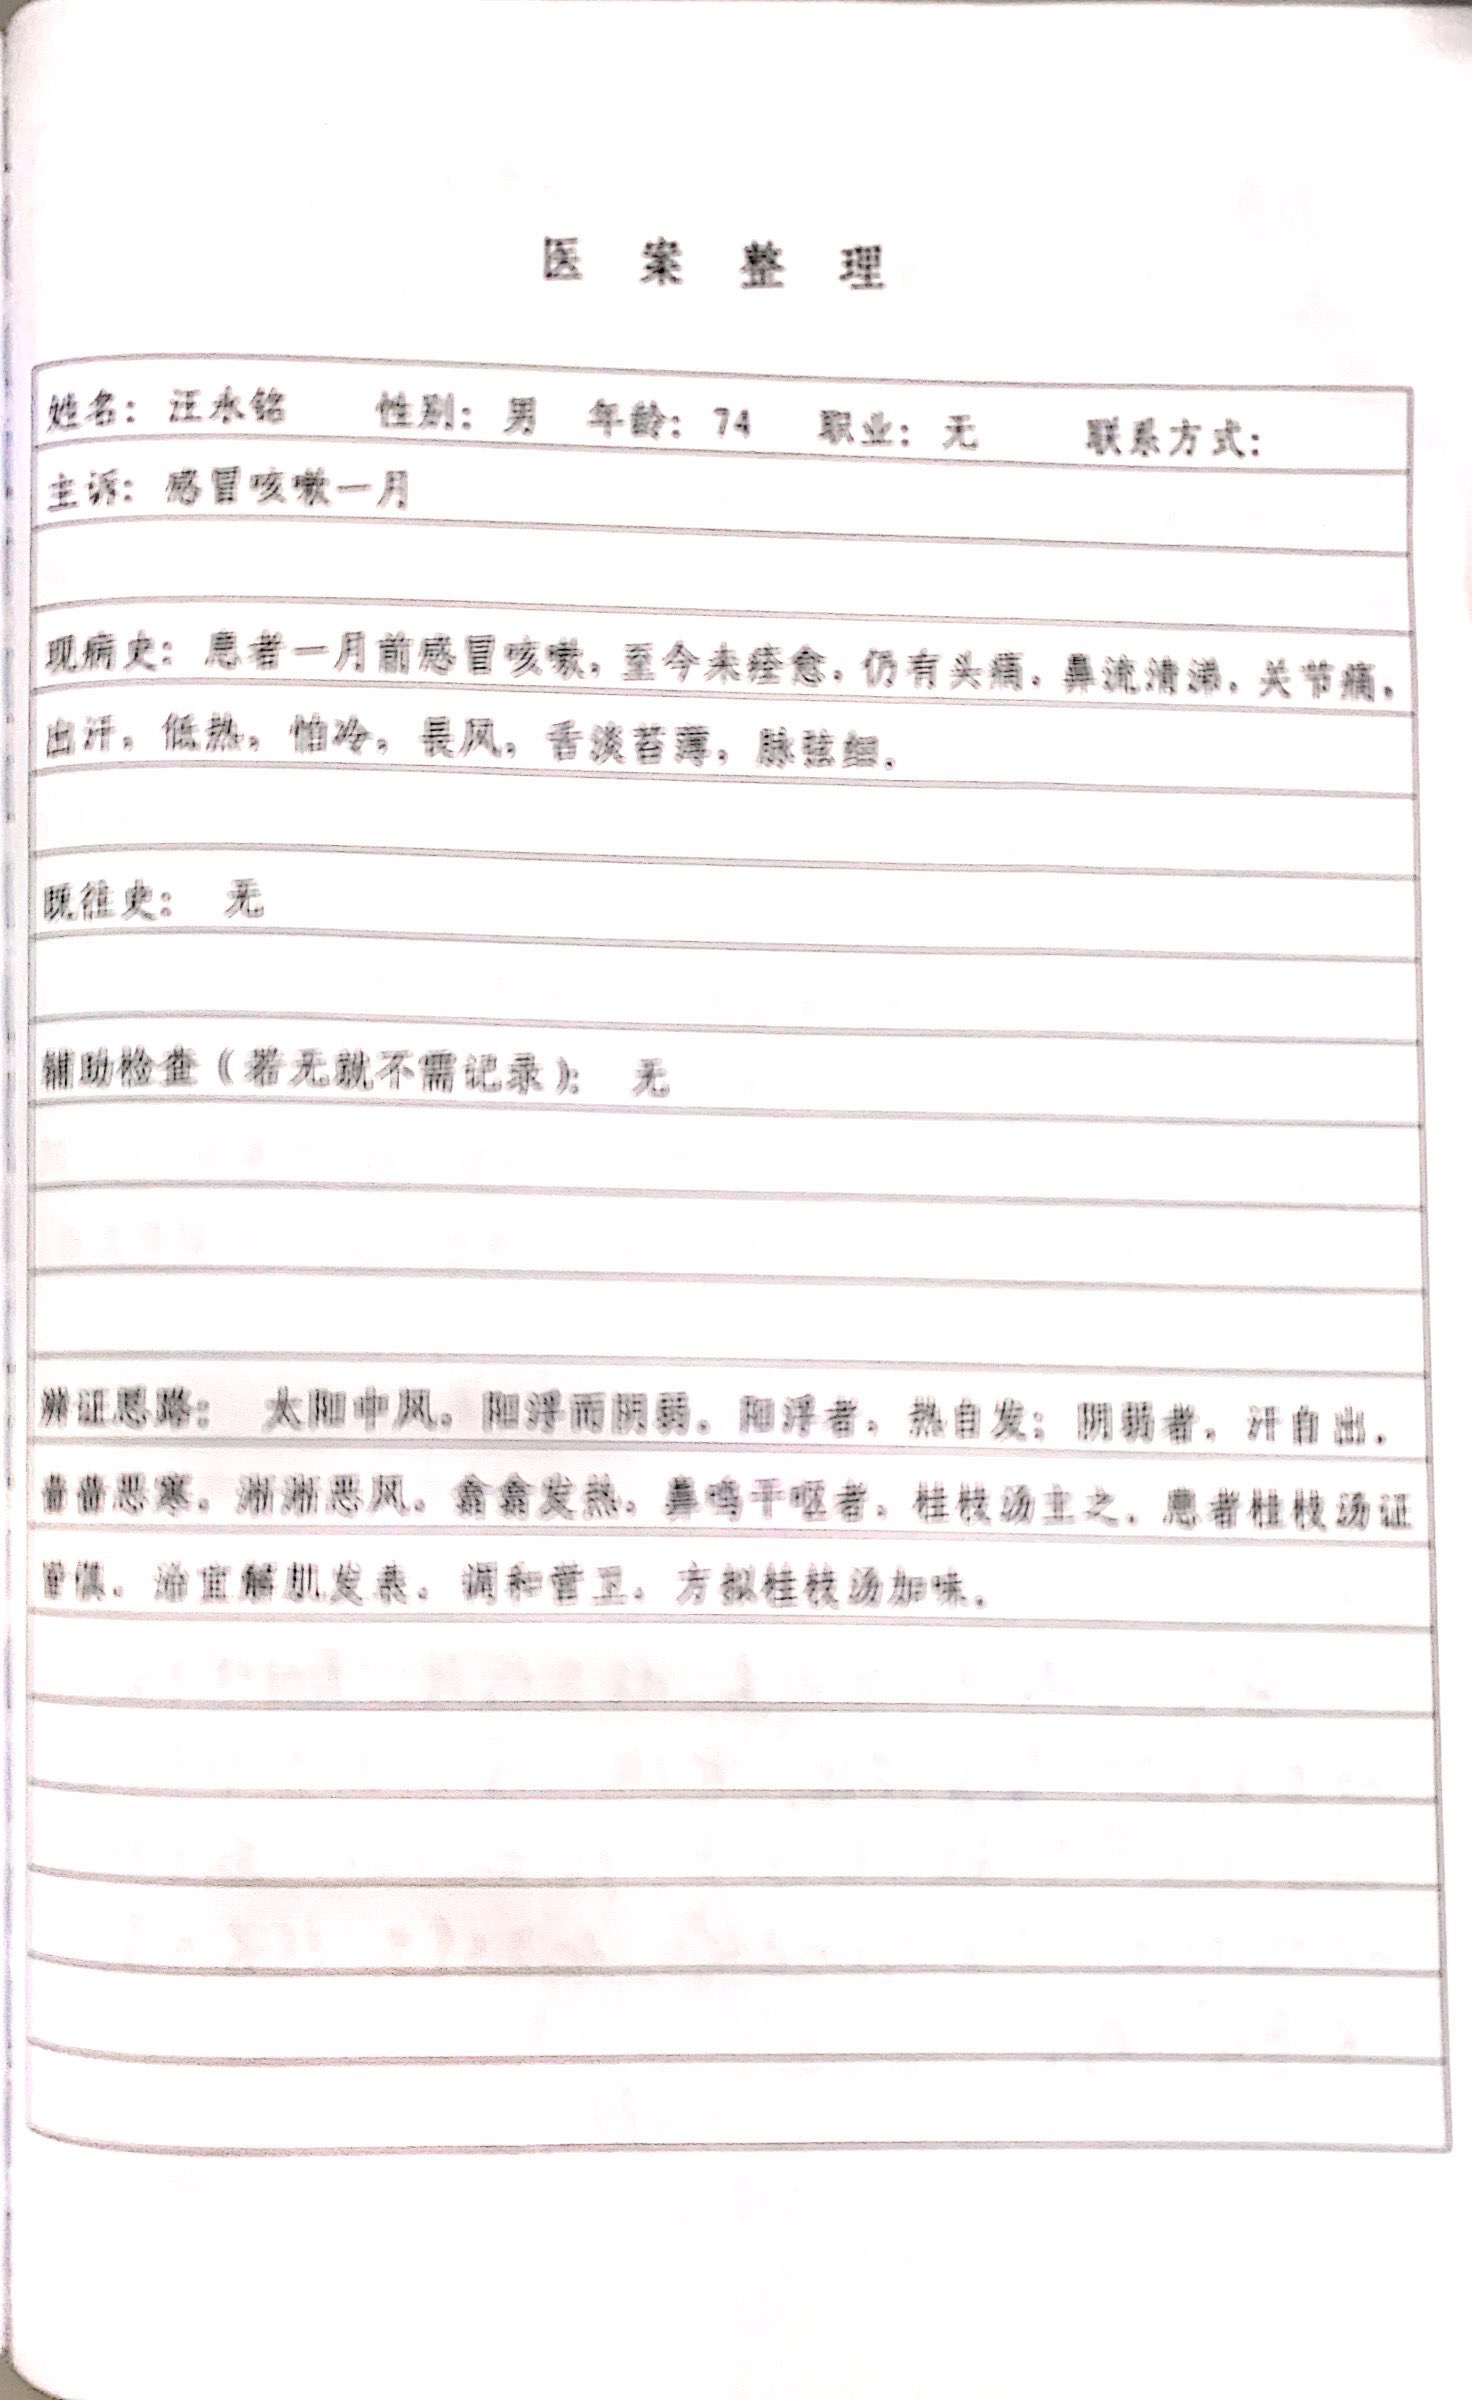 医案整理
姓名：汪永铭 性别：男 年龄：74 职业：无 联系方式：
主诉：感冒咳嗽一月
现病史：患者一月前感冒咳嗽，至今未痊愈，仍有头痛，鼻流清涕，关节痛，
出汗，低热，怕冷，畏风，舌淡苔薄，脉弦细。
既往史： 无
辅助检查（若无就不需记录）： 无
辨证思路： 太阳中风，阳浮而阴弱。阳浮者，热自发；阴弱者，汗自出。
啬啬恶寒，淅淅恶风，翕翕发热，鼻鸣干呕者，桂枝汤主之。患者桂枝汤证
皆俱，治宜解肌发表，调和营卫，方拟桂枝汤加味。